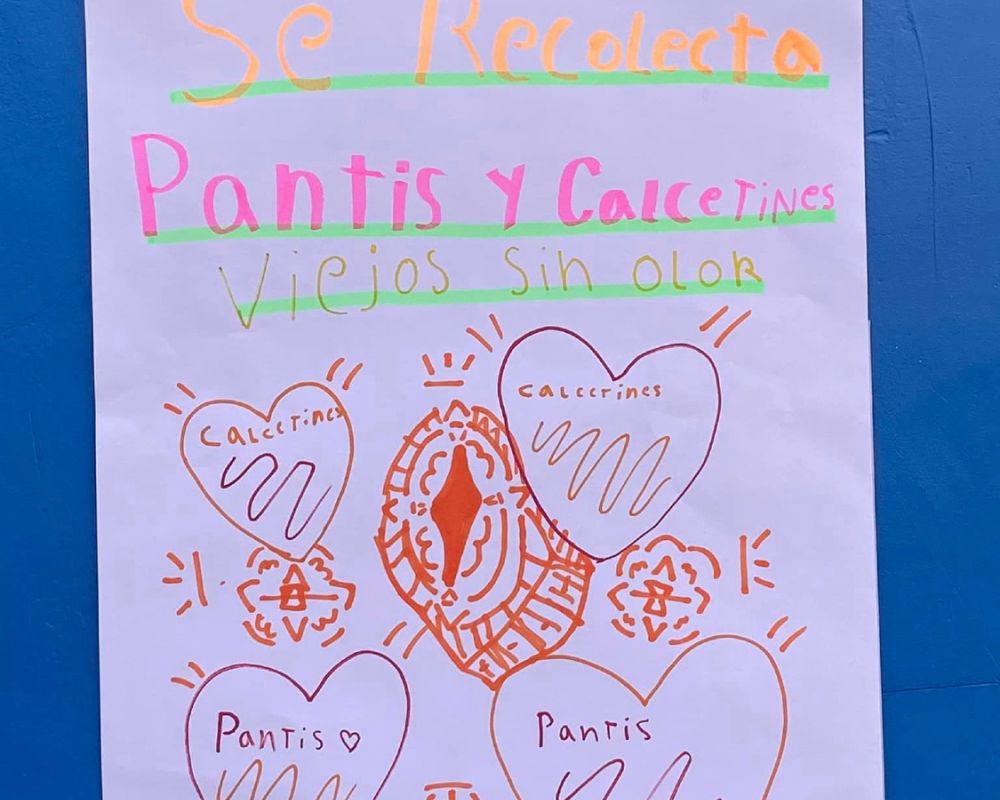 Se Recolecta
Pantis y Calcetines
Viejos sin olor
calcetines
calcetines
Pantis ♡
Pantis